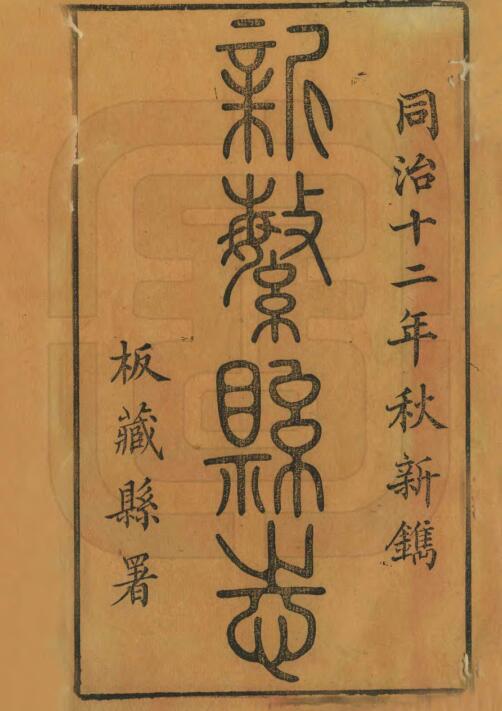 同治十二年秋新鐫
新繁縣志
板藏縣署